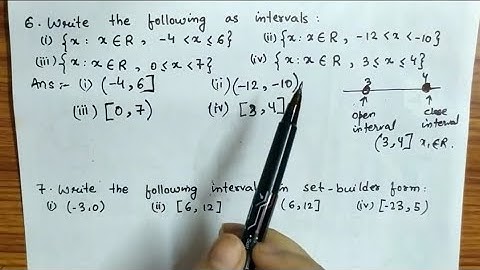 6. Write the following as intervals :
(i) {x : x ∈ R , -4 < x ≤ 6} (ii) {x : x ∈ R , -12 < x < -10}
(iii) {x : x ∈ R , 0 ≤ x < 7} (iv) {x : x ∈ R , 3 ≤ x ≤ 4}
Ans :- (i) (-4, 6] (ii) (-12, -10)
(iii) [0, 7) (iv) [3, 4]
3 4
open interval
close interval
(3, 4] x, ∈ R.
7. Write the following interval in set-builder form :
(i) (-3, 0) (ii) [6, 12] (6, 12] (iv) [-23, 5)